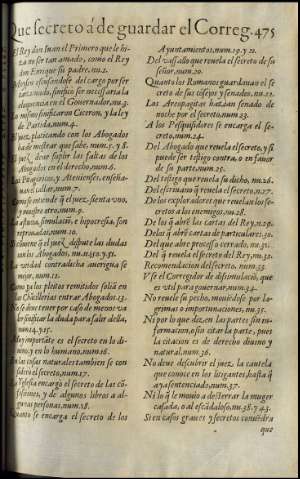 Que secreto á de guardar el Correg. 475
El Rey don Iuan el Primero que le hi-
za no ser tan amado, como el Rey
don Enrique su padre, nu.2.
Moyses escusandose del cargo por ser
tartamudo, significo ser necessaria la
eloquencia en el Gouernador, nu.3.
Lo mismo significaron Ciceron, y la ley
de Partida, num.4.
El juez, platicando con los Abogados
hade mostrar que sabe, num.5. y 8.
El juez deue suplir las faltas de los
Abogados en el derecho, num.6.
Los Pitagoricos, y Atenienses, enseña-
uan el callar, num.7.
Como se entiende q̃ el juez, sienta vno,
y muestre otro, num.9.
La astucia, simulacion, e hipocresia, son
reprouadas, num.10.
Si conuiene q̃ el juez dispute las dudas
con los Abogados, nu.11.50. y 51.
La verdad contradicha aueriguase me
jor, num.12.
Como ya los pleitos remitidos salia en
las Chãcillerias entrar Abogados. 13.
No se deue tener por caso de menos va
ler comunicar la duda para saber della,
num.14. y 15.
Muy importate es el secreto en lo di-
uino, y en lo humano, num.16.
En las cosas naturales tambien se con
sidere el secreto, num.17.
La Yglesia encarga el secreto de las cõ-
fessiones, y de algunos libros a al-
gunas personas, num.18.
Quanto se encarga el secreto de los
Ayuntamientos, num.19. y 21.
Del vassallo que reuela el secreto de su
señor, num.20.
Quanto los Romanos guardauan el se
creto de sus cõsejos y senados, nu.22.
Los Areopagitas hazian senado de
noche por el secreto, num.23.
A los Pesquisidores se encarga el se-
creto, num.24.
Del Abogado que reuela el secreto, y si
puede ser testigo contra, o en fauor
de su parte, num.25.
Del testigo que reuela su dicho, nu.26.
Del escriuano q̃ reuela el secreto, n.27.
De los exploradores que reuelan los se-
cretos a los enemigos, nu.28.
De los q̃ abrẽ las cartas del Rey, n.29.
De los q̃ abrẽ cartas de particulares. 30.
Del que abre processo cerrado, nu.31.
Del que reuela el secreto del Rey, nu.32.
Recomendacion del secreto, num.33.
Vse el Corregidor de dissimulaciõ, que
es vtil para gouernar, num.34.
No reuele su pecho, mouidose por la-
grimas o importunaciones, nu.35.
Ni por lo que dizẽ en las partes sin in-
formacion, o sin citar la parte, pues
la citacion es de derecho diuino y
natural, num.36.
No deue descubrir el juez, la cautela
que conoce en los litigantes, hasta q̃
aya sentenciado, num.37.
Ni lo q̃ le mouio a desterrar la muger
casada, o al escãdaloso, nu.38. y 43.
Si en casos graues y secretos consultara
que